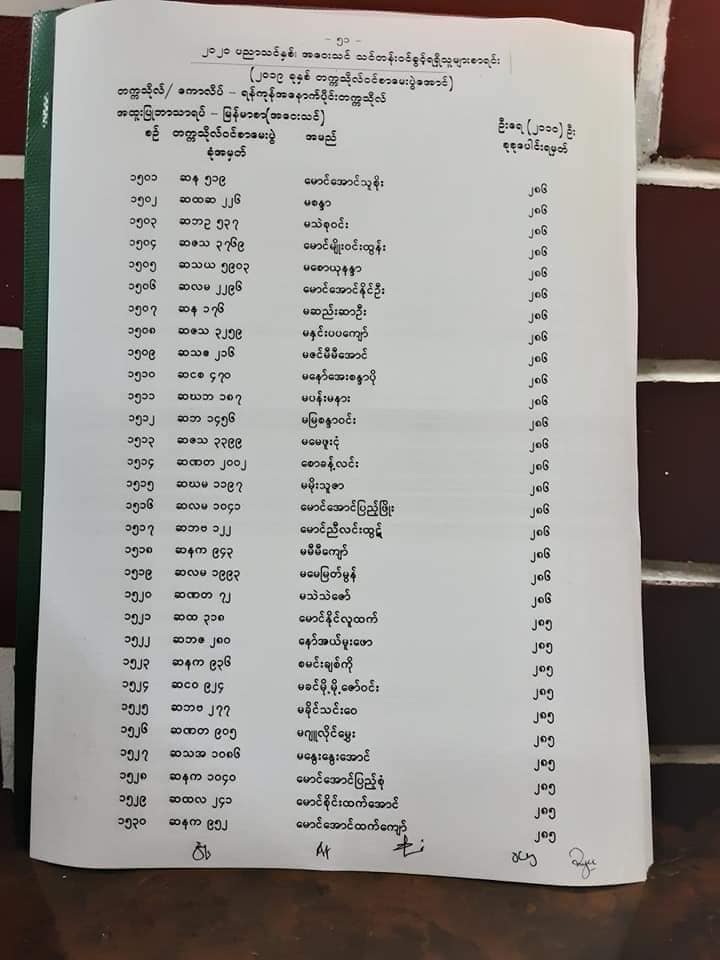 - ၅၁ -
၂၀၂၁ ပညာသင်နှစ်၊ အဝေးသင် သင်တန်းဝင်ခွင့်ရရှိသူများစာရင်း
(၂၀၁၉ ခုနှစ် တက္ကသိုလ်ဝင်စာမေးပွဲအောင်)
တက္ကသိုလ်/ ကောလိပ် - ရန်ကုန်အနောက်ပိုင်းတက္ကသိုလ်
အထူးပြုဘာသာရပ် - မြန်မာစာ(အဝေးသင်) ဦးရေ (၂၁၁၀) ဦး
စဉ် တက္ကသိုလ်ဝင်စာမေးပွဲ အမည် စုစုပေါင်းရမှတ်
ခုံအမှတ်
၁၅၀၁ ဆန ၅၁၉ မောင်အောင်သူစိုး ၂၈၆
၁၅၀၂ ဆထဆ ၂၂၆ မစန္ဒာ ၂၈၆
၁၅၀၃ ဆဘဥ ၅၃၇ မသဲစုဝင်း ၂၈၆
၁၅၀၄ ဆဇသ ၃၇၆၉ မောင်မျိုးဝင်းထွန်း ၂၈၆
၁၅၀၅ ဆသယ ၅၉၀၃ မစောယုနန္ဒာ ၂၈၆
၁၅၀၆ ဆလမ ၂၂၉၆ မောင်အောင်နိုင်ဦး ၂၈၆
၁၅၀၇ ဆန ၁၇၆ မဆည်းဆာဦး ၂၈၆
၁၅၀၈ ဆဇသ ၃၂၅၉ မနှင်းပပကျော် ၂၈၆
၁၅၀၉ ဆသဇ ၂၁၆ မဇင်မီမီအောင် ၂၈၆
၁၅၁၀ ဆငစ ၄၇၀ မနော်အေးစန္ဒာပို ၂၈၆
၁၅၁၁ ဆဃဘ ၁၈၇ မပန်းမနား ၂၈၆
၁၅၁၂ ဆဘ ၁၄၅၆ မမြစန္ဒာဝင်း ၂၈၆
၁၅၁၃ ဆဇသ ၃၃၉၉ မမေဖူးငုံ ၂၈၆
၁၅၁၄ ဆဏတ ၂၀၀၂ စောခန့်လင်း ၂၈၆
၁၅၁၅ ဆဃမ ၁၁၉၇ မမိုးသူဇာ ၂၈၆
၁၅၁၆ ဆလမ ၁၀၄၁ မောင်အောင်ပြည့်ဖြိုး ၂၈၆
၁၅၁၇ ဆဘဗ ၁၂၂ မောင်ညီလင်းထွဋ် ၂၈၆
၁၅၁၈ ဆနက ၉၄၃ မမီမီကျော် ၂၈၆
၁၅၁၉ ဆလမ ၁၉၉၃ မမေမြတ်မွန် ၂၈၆
၁၅၂၀ ဆဏတ ၇၂ မသဲသဲဇော် ၂၈၆
၁၅၂၁ ဆထ ၃၁၈ မောင်နိုင်လူထက် ၂၈၅
၁၅၂၂ ဆဘဇ ၂၈၀ နော်အယ်မူးဖော ၂၈၅
၁၅၂၃ ဆနက ၉၃၆ စမင်းချစ်ကို ၂၈၅
၁၅၂၄ ဆငဝ ၉၂၄ မခင်မို့မို့ဇော်ဝင်း ၂၈၅
၁၅၂၅ ဆဘဗ ၂၇၇ မခိုင်သင်းဝေ ၂၈၅
၁၅၂၆ ဆဏတ ၉၀၅ မဂျူလိုင်မွှေး ၂၈၅
၁၅၂၇ ဆသအ ၁၀၈၆ မနွေးနွေးအောင် ၂၈၅
၁၅၂၈ ဆနက ၁၀၄၀ မောင်အောင်ပြည့်စုံ ၂၈၅
၁၅၂၉ ဆထလ ၂၄၁ မောင်စိုင်းထက်အောင် ၂၈၅
၁၅၃၀ ဆနက ၉၅၂ မောင်အောင်ထက်ကျော် ၂၈၅